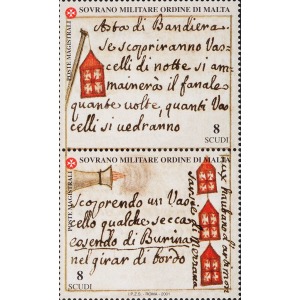 SOVRANO MILITARE ORDINE DI MALTA
POSTE MAGISTRALI
Asta di Bandiera
se scopriranno Vas=
celli di notte si am=
mainerà il fanale
quante volte, quanti Vas
celli si vedranno
8
SCUDI
SOVRANO MILITARE ORDINE DI MALTA
POSTE MAGISTRALI
Scoprendo un Vas
cello qualche secca
essendo di Burina
nel girar di bordo
8
SCUDI
I.P.Z.S. - ROMA - 2001